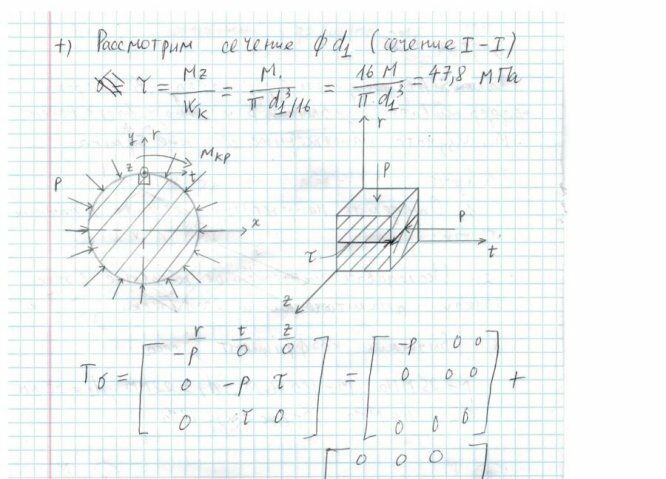 +) Рассмотрим сечение ϕ d₁ (сечение I-I)
τ = Mz/Wк = M/(π d₁³/16) = 16 M/(π d₁³) = 47,8 МПа
y r
z t
Mкр
P
x
r
P
P
τ
t
z
r t z
Tσ = [ -p 0 0 ; 0 -p τ ; 0 τ 0 ] = [ -p 0 0 ; 0 0 0 ; 0 0 0 ] +
[ 0 0 0 ]